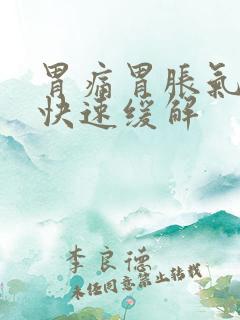 胃痛胃脹氣
快速缓解
李良德
未经同意禁止转载